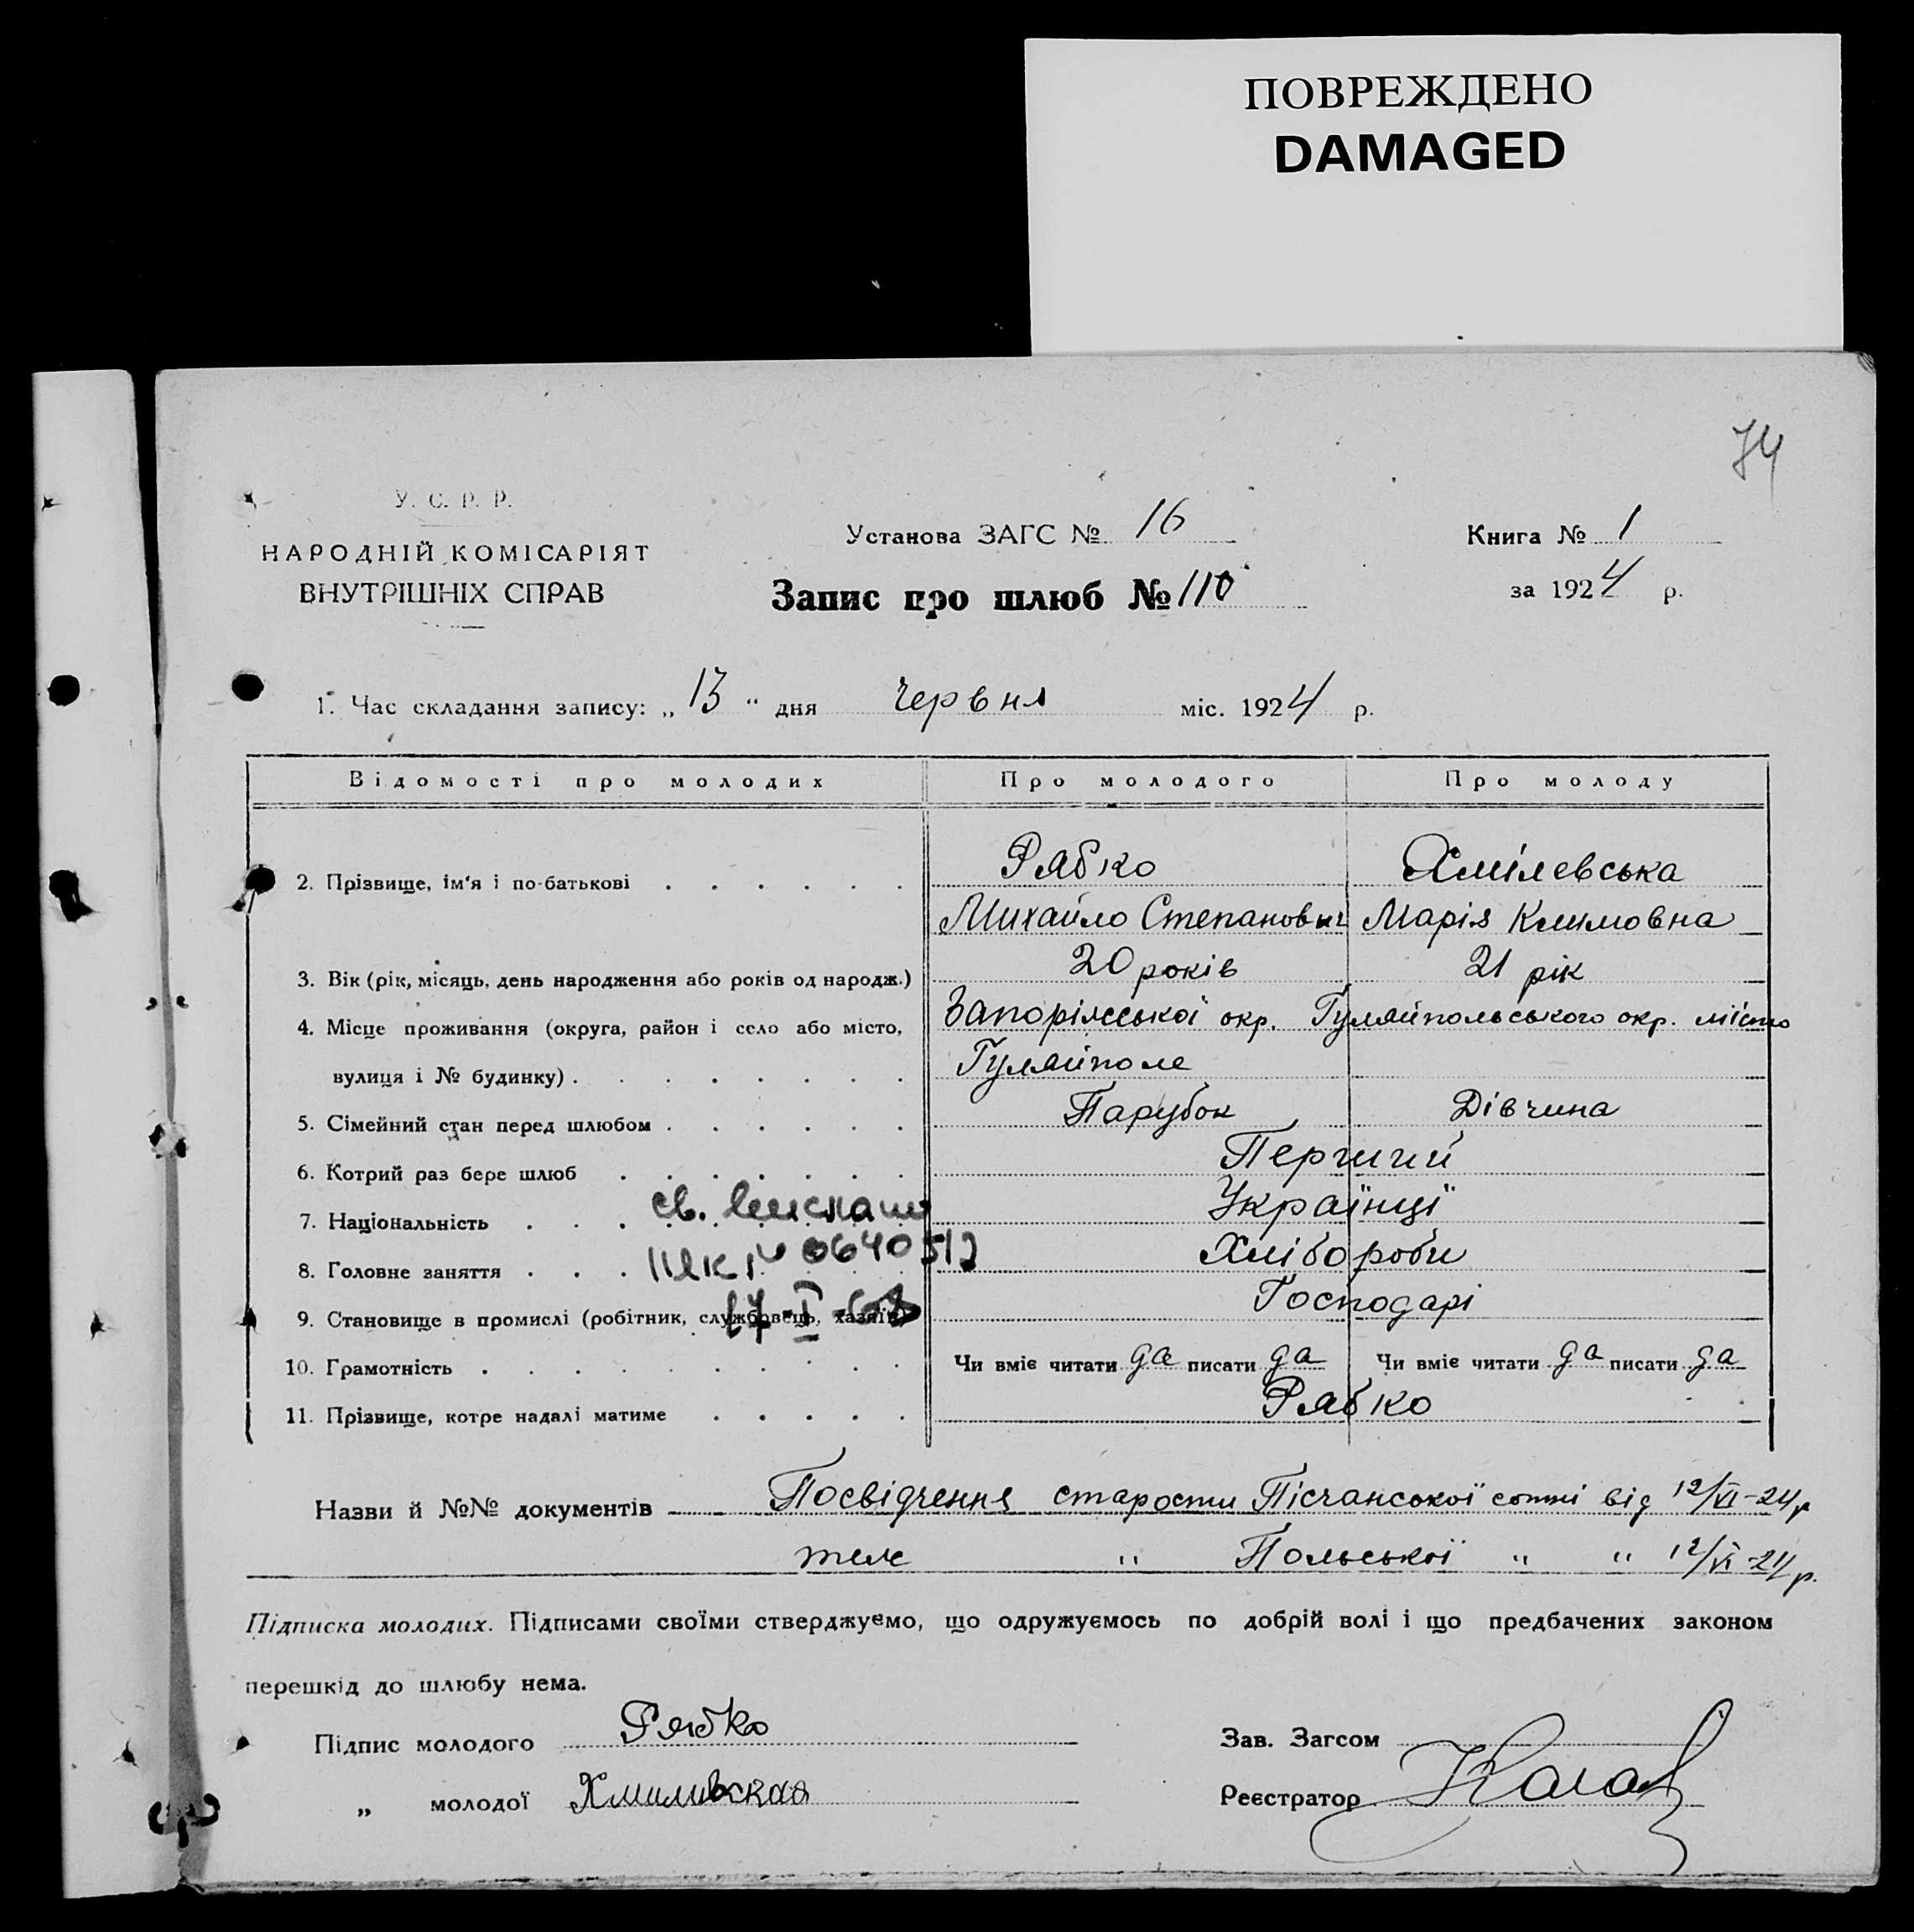 ПОВРЕЖДЕНО
DAMAGED
74
У. С. Р. Р.
НАРОДНІЙ КОМІСАРІЯТ
ВНУТРІШНІХ СПРАВ
Установа ЗАГС № 16
Книга № 1
Запис про шлюб № 110
за 1924 р.
1. Час складання запису: „ 13 “ дня червня міс. 1924 р.
Відомості про молодих Про молодого Про молоду
2. Прізвище, ім'я і по-батькові Рябко Хмілевська
Михайло Степанович Марія Климовна
3. Вік (рік, місяць, день народження або років од народж.) 20 років 21 рік
4. Місце проживання (округа, район і село або місто, Запоріжської окр. Гуляйпольського окр. місто
вулиця і № будинку) Гуляйполе
5. Сімейний стан перед шлюбом Парубок Дівчина
6. Котрий раз бере шлюб Перший
7. Національність св. Українці
8. Головне заняття 0640512 Хлібороби
9. Становище в промислі (робітник, службовець, хазяїн) Господарі
10. Грамотність Чи вміє читати да писати да Чи вміє читати да писати да
11. Прізвище, котре надалі матиме Рябко
Назви й №№ документів Посвідчення старости Пісчанської сотні від 12/VI-24 р
теж " Польської " " 12/VI-24 р.
Підписка молодих. Підписами своїми стверджуємо, що одружуємось по добрій волі і що предбачених законом
перешкід до шлюбу нема.
Підпис молодого Рябко
Зав. Загсом
„ молодої Хмиливская
Реєстратор